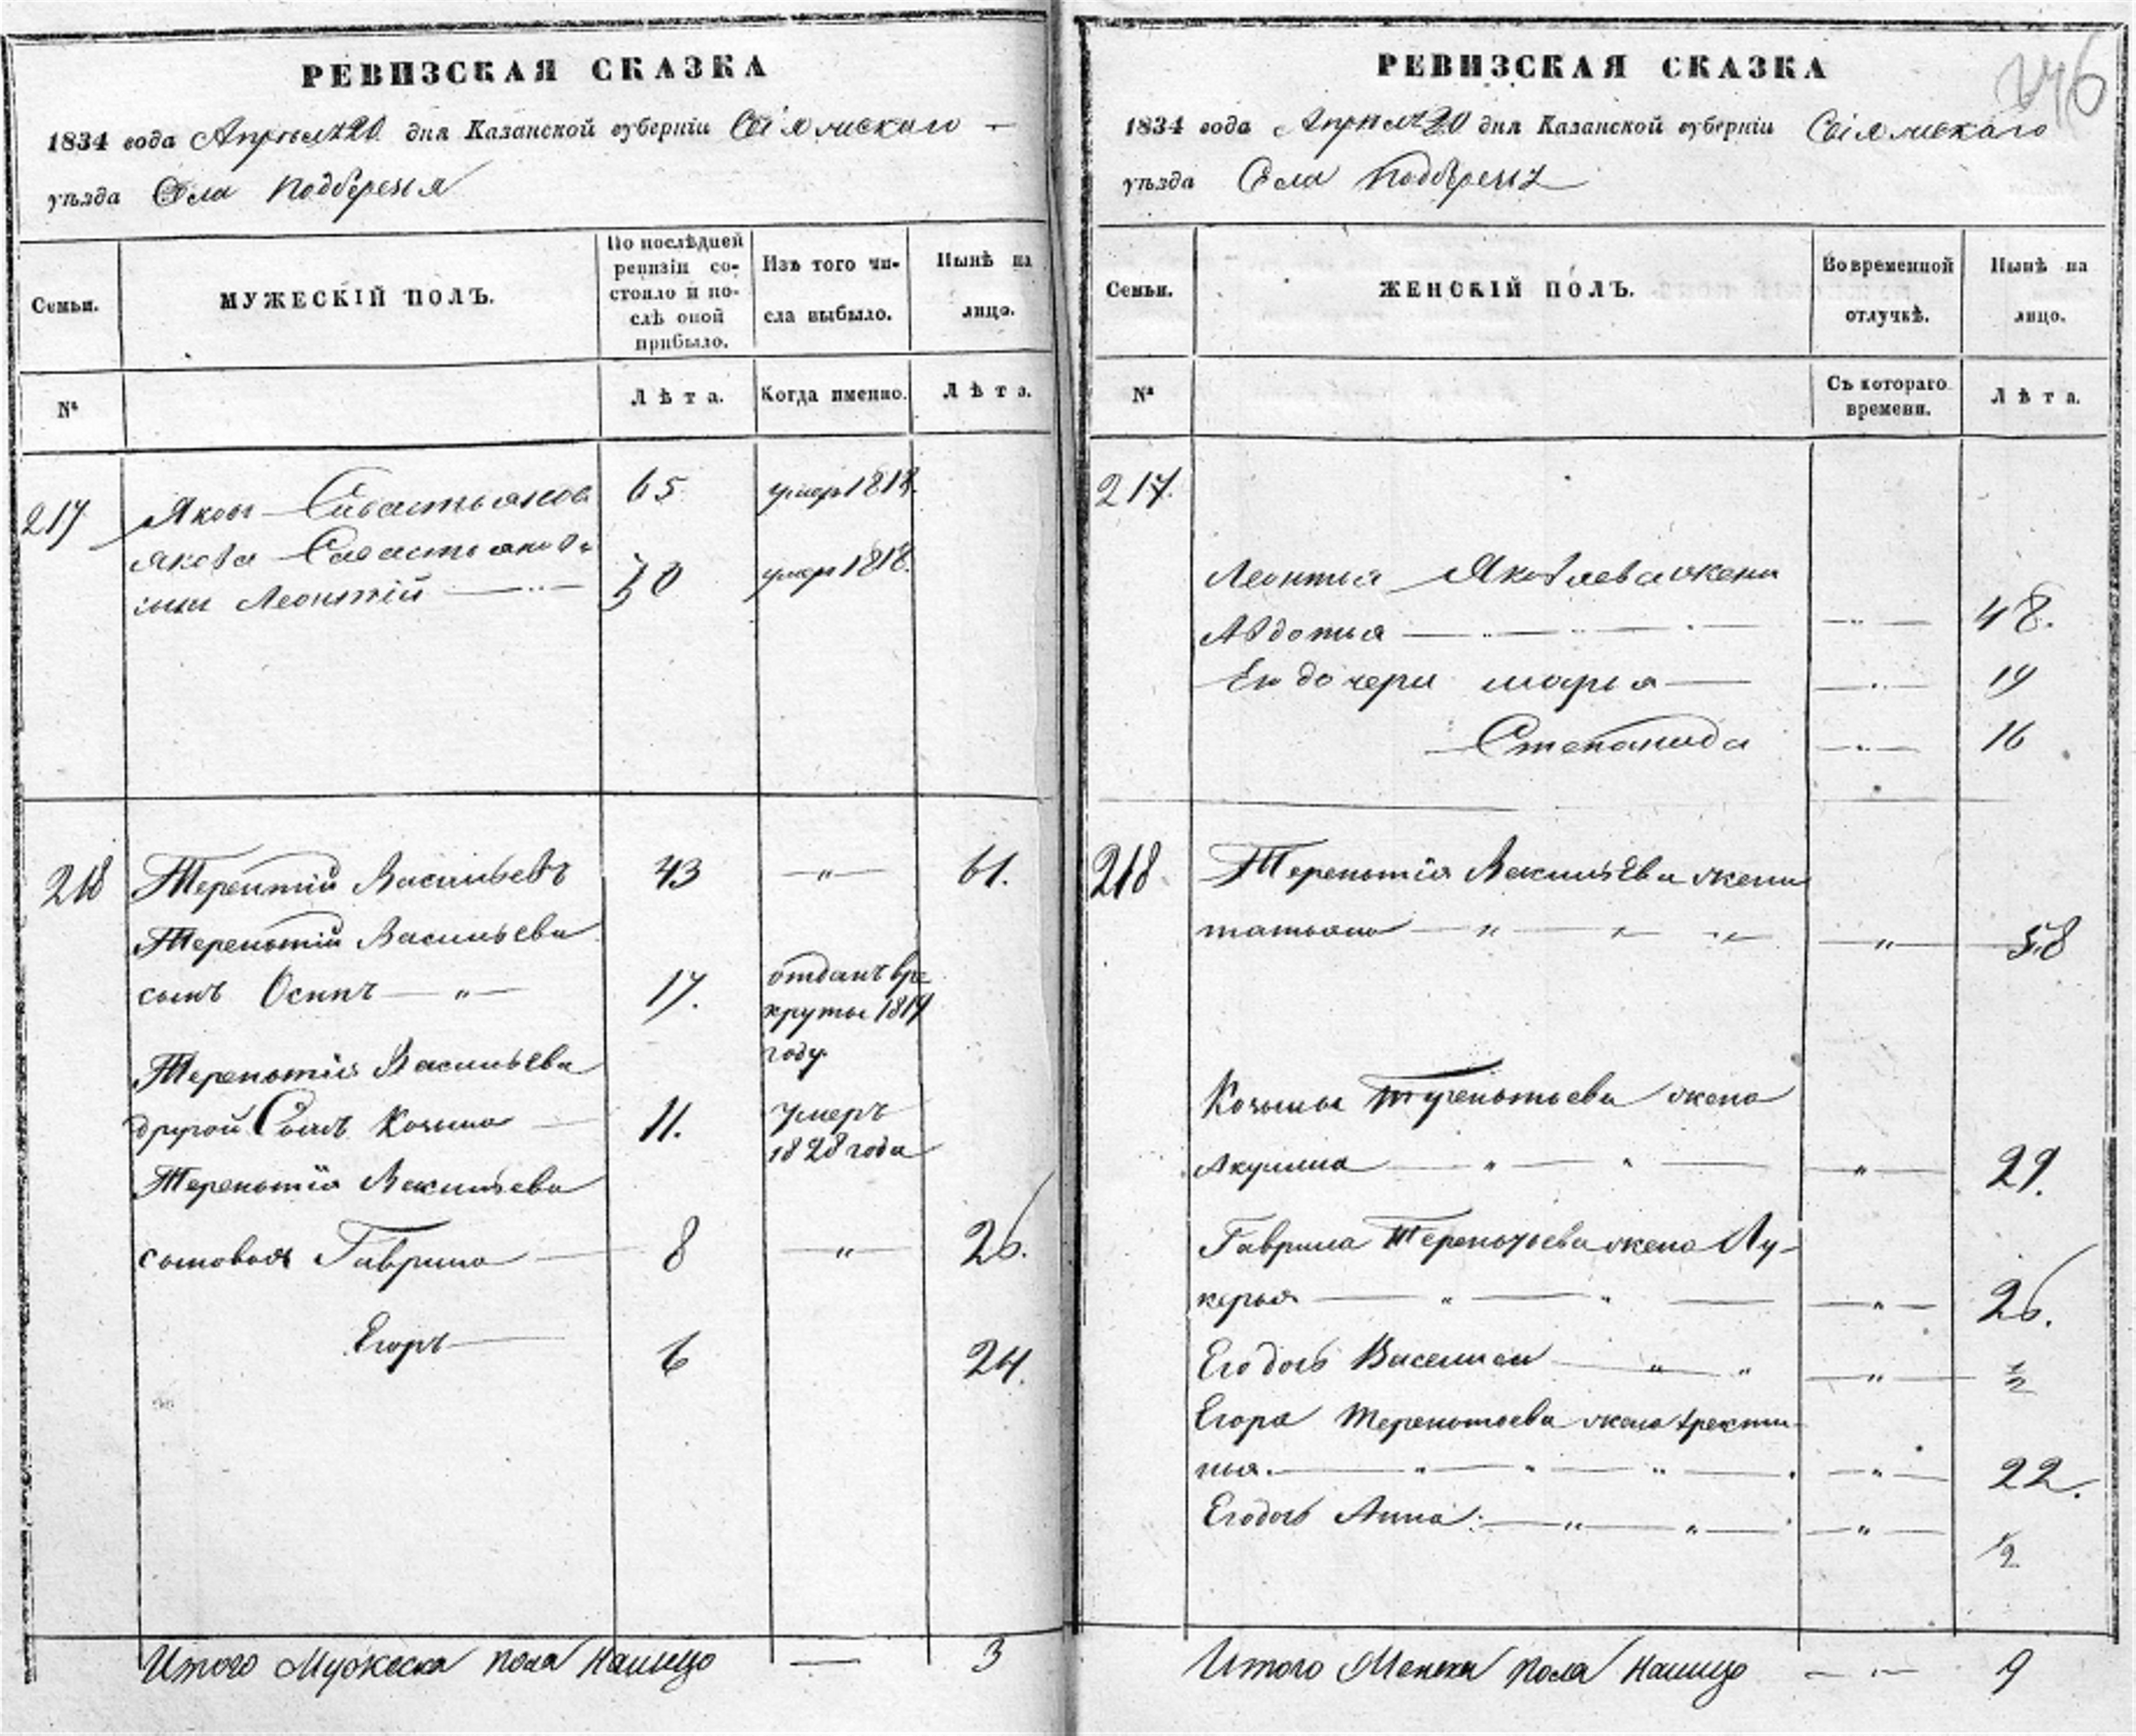 РЕВИЗСКАЯ СКАЗКА
1834 года Апреля 20 дня Казанской губерніи Свіяжскаго
уѣзда Села Подберезья
Семьи.
МУЖЕСКІЙ ПОЛЪ.
По послѣдней
ревизіи со-
стояло и по-
слѣ оной
прибыло.
Изъ того чи-
сла выбыло.
Нынѣ на
лицо.
№
Лѣта.
Когда именно.
Лѣта.
217 Яковъ Савастьяновъ 65 умер 1818.
Якова Савастьянова
сын Леонтій 30 умер 1818.
218 Терентій Васильевъ 43 — " — 61.
Терентия Васильева
сынъ Осипъ — " — 17. отданъ в ре
круты 1819
году.
Терентия Васильева
другой Сынъ Козьма 11. умеръ
1828 года
Терентия Васильева
сыновья Гаврила 8 — " — 26.
Егоръ 6 24.
Итого Мужеска пола налицо — 3
246
РЕВИЗСКАЯ СКАЗКА
1834 года Апреля 20 дня Казанской губерніи Свіяжскаго
уѣзда Села Подберезья
Семьи.
ЖЕНСКІЙ ПОЛЪ.
Во временной
отлучкѣ.
Нынѣ на
лицо.
№
Съ котораго
времени.
Лѣта.
217.
Леонтья Яковлева жена
Авдотья 48.
Ево дочери Марья 19
Степанида 16
218 Терентия Васильева жена
татьяна — " — 58
Козьмы Терентьева жена
Акулина 29.
Гаврила Терентьева жена Лу-
керья 26.
Его дочь Василиса 1/2
Егора Терентьева жена
нья. 22.
Его дочь Анна 1/2
Итого Женска пола налицо — " — 9